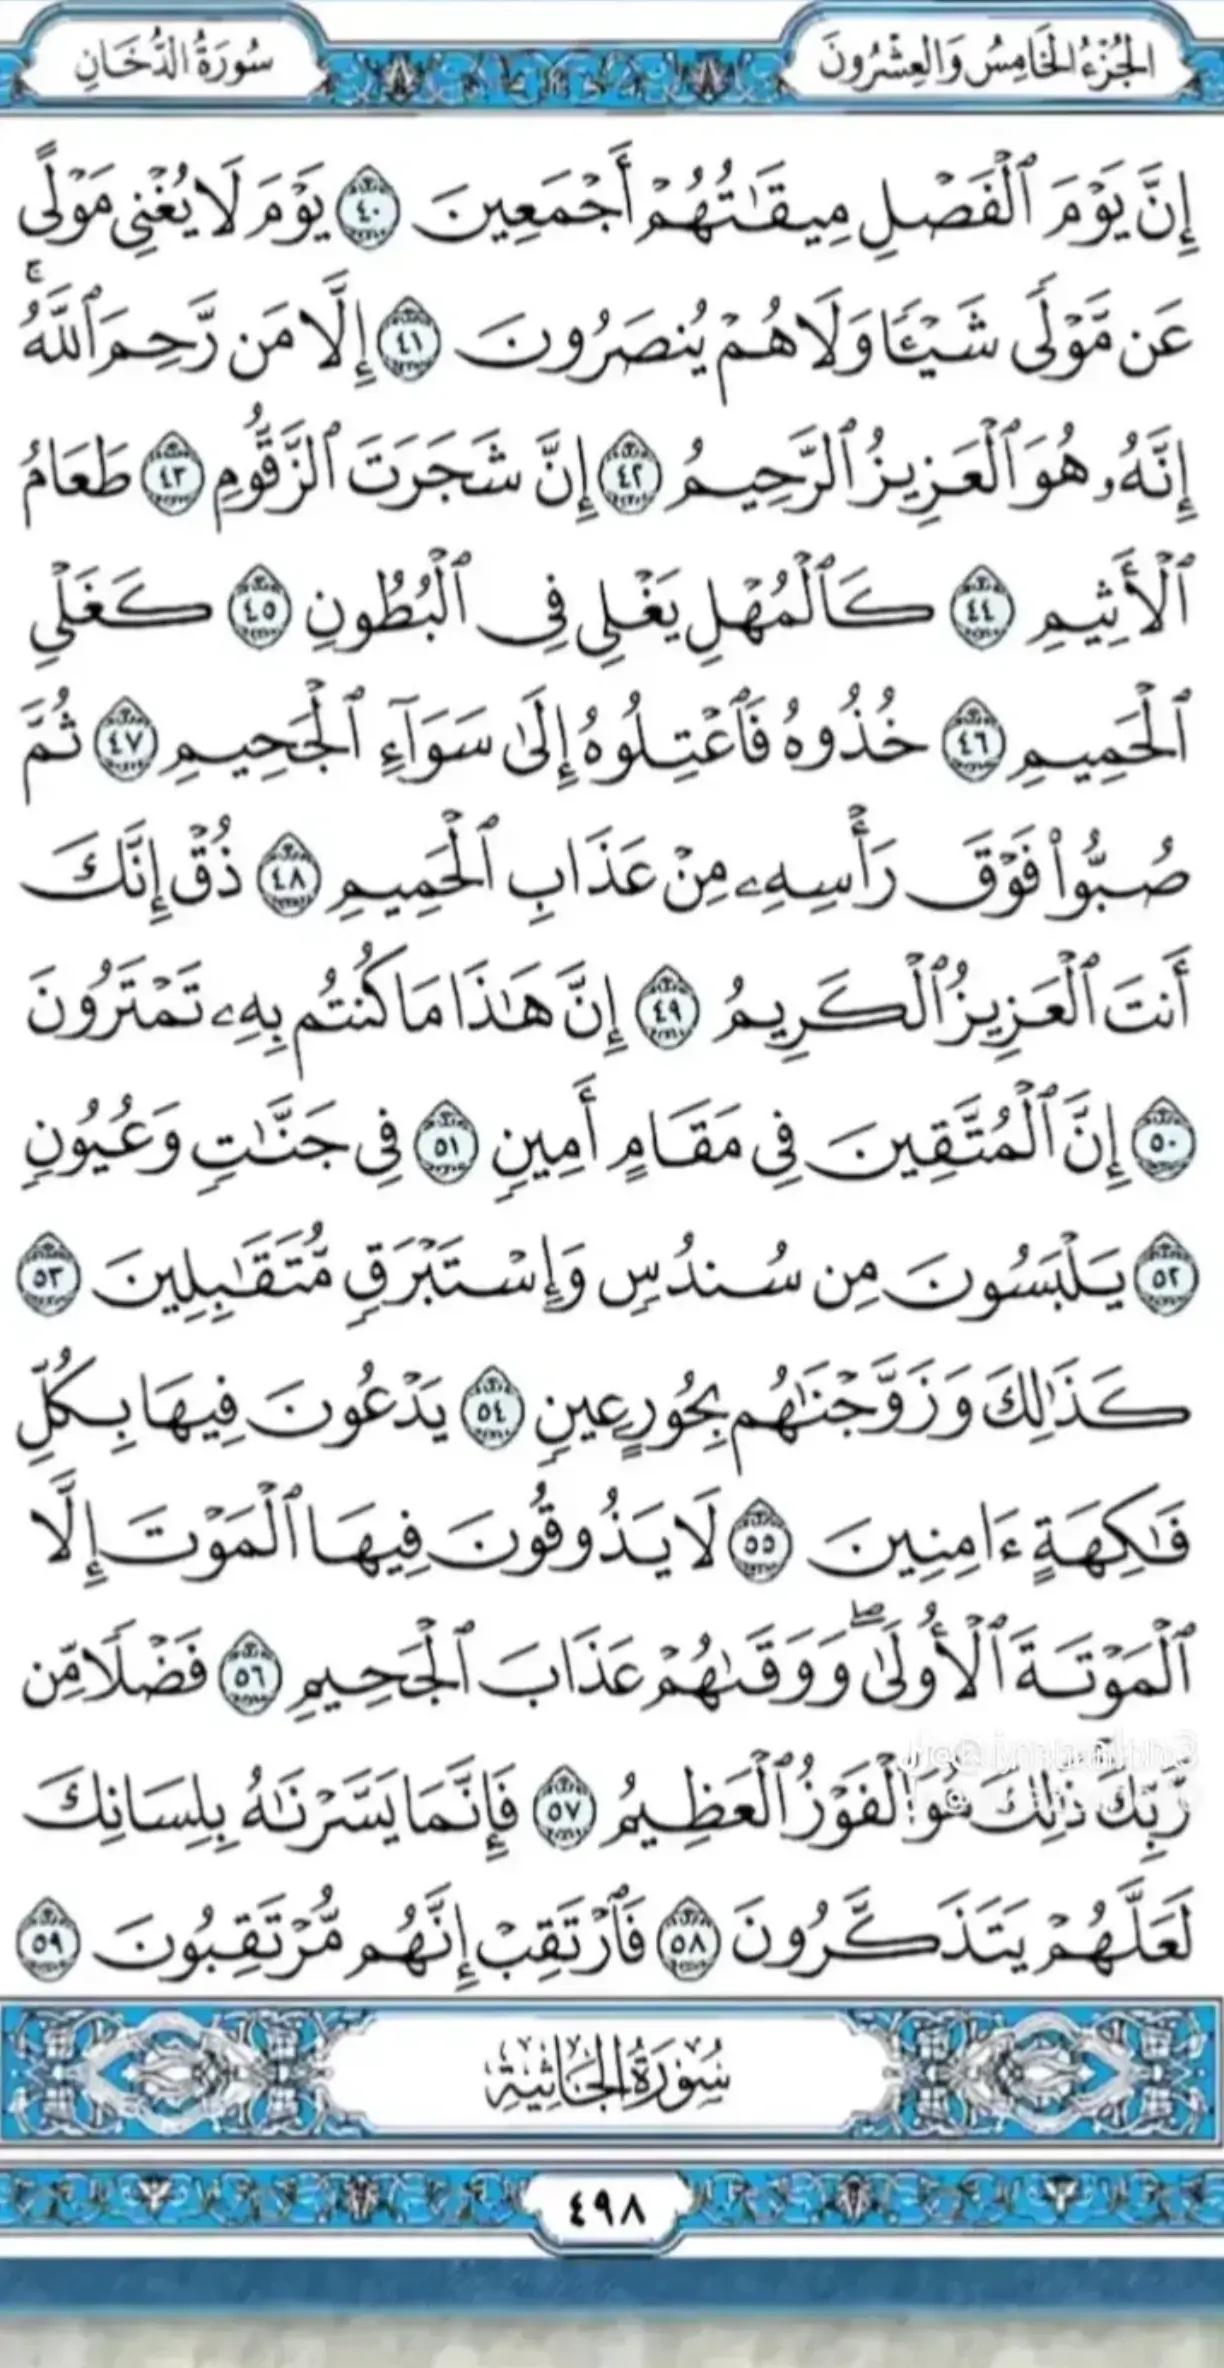 الجُزْءُ الخَامِسُ وَالعِشْرُونَ
سُورَةُ الدُّخَانِ
إِنَّ يَوْمَ ٱلْفَصْلِ مِيقَـٰتُهُمْ أَجْمَعِينَ ٤٠ يَوْمَ لَا يُغْنِى مَوْلًى
عَن مَّوْلًى شَيْـًٔا وَلَا هُمْ يُنصَرُونَ ٤١ إِلَّا مَن رَّحِمَ ٱللَّهُ ۚ
إِنَّهُۥ هُوَ ٱلْعَزِيزُ ٱلرَّحِيمُ ٤٢ إِنَّ شَجَرَتَ ٱلزَّقُّومِ ٤٣ طَعَامُ
ٱلْأَثِيمِ ٤٤ كَٱلْمُهْلِ يَغْلِى فِى ٱلْبُطُونِ ٤٥ كَغَلْىِ
ٱلْحَمِيمِ ٤٦ خُذُوهُ فَٱعْتِلُوهُ إِلَىٰ سَوَآءِ ٱلْجَحِيمِ ٤٧ ثُمَّ
صُبُّوا۟ فَوْقَ رَأْسِهِۦ مِنْ عَذَابِ ٱلْحَمِيمِ ٤٨ ذُقْ إِنَّكَ
أَنتَ ٱلْعَزِيزُ ٱلْكَرِيمُ ٤٩ إِنَّ هَـٰذَا مَا كُنتُم بِهِۦ تَمْتَرُونَ
٥٠ إِنَّ ٱلْمُتَّقِينَ فِى مَقَامٍ أَمِينٍ ٥١ فِى جَنَّـٰتٍ وَعُيُونٍ
٥٢ يَلْبَسُونَ مِن سُندُسٍ وَإِسْتَبْرَقٍ مُّتَقَـٰبِلِينَ ٥٣
كَذَٰلِكَ وَزَوَّجْنَـٰهُم بِحُورٍ عِينٍ ٥٤ يَدْعُونَ فِيهَا بِكُلِّ
فَـٰكِهَةٍ ءَامِنِينَ ٥٥ لَا يَذُوقُونَ فِيهَا ٱلْمَوْتَ إِلَّا
ٱلْمَوْتَةَ ٱلْأُولَىٰ ۖ وَوَقَىٰهُمْ عَذَابَ ٱلْجَحِيمِ ٥٦ فَضْلًا مِّن
رَّبِّكَ ذَٰلِكَ هُوَ ٱلْفَوْزُ ٱلْعَظِيمُ ٥٧ فَإِنَّمَا يَسَّرْنَـٰهُ بِلِسَانِكَ
لَعَلَّهُمْ يَتَذَكَّرُونَ ٥٨ فَٱرْتَقِبْ إِنَّهُم مُّرْتَقِبُونَ ٥٩
سُورَةُ الجَاثِيَةِ
٤٩٨